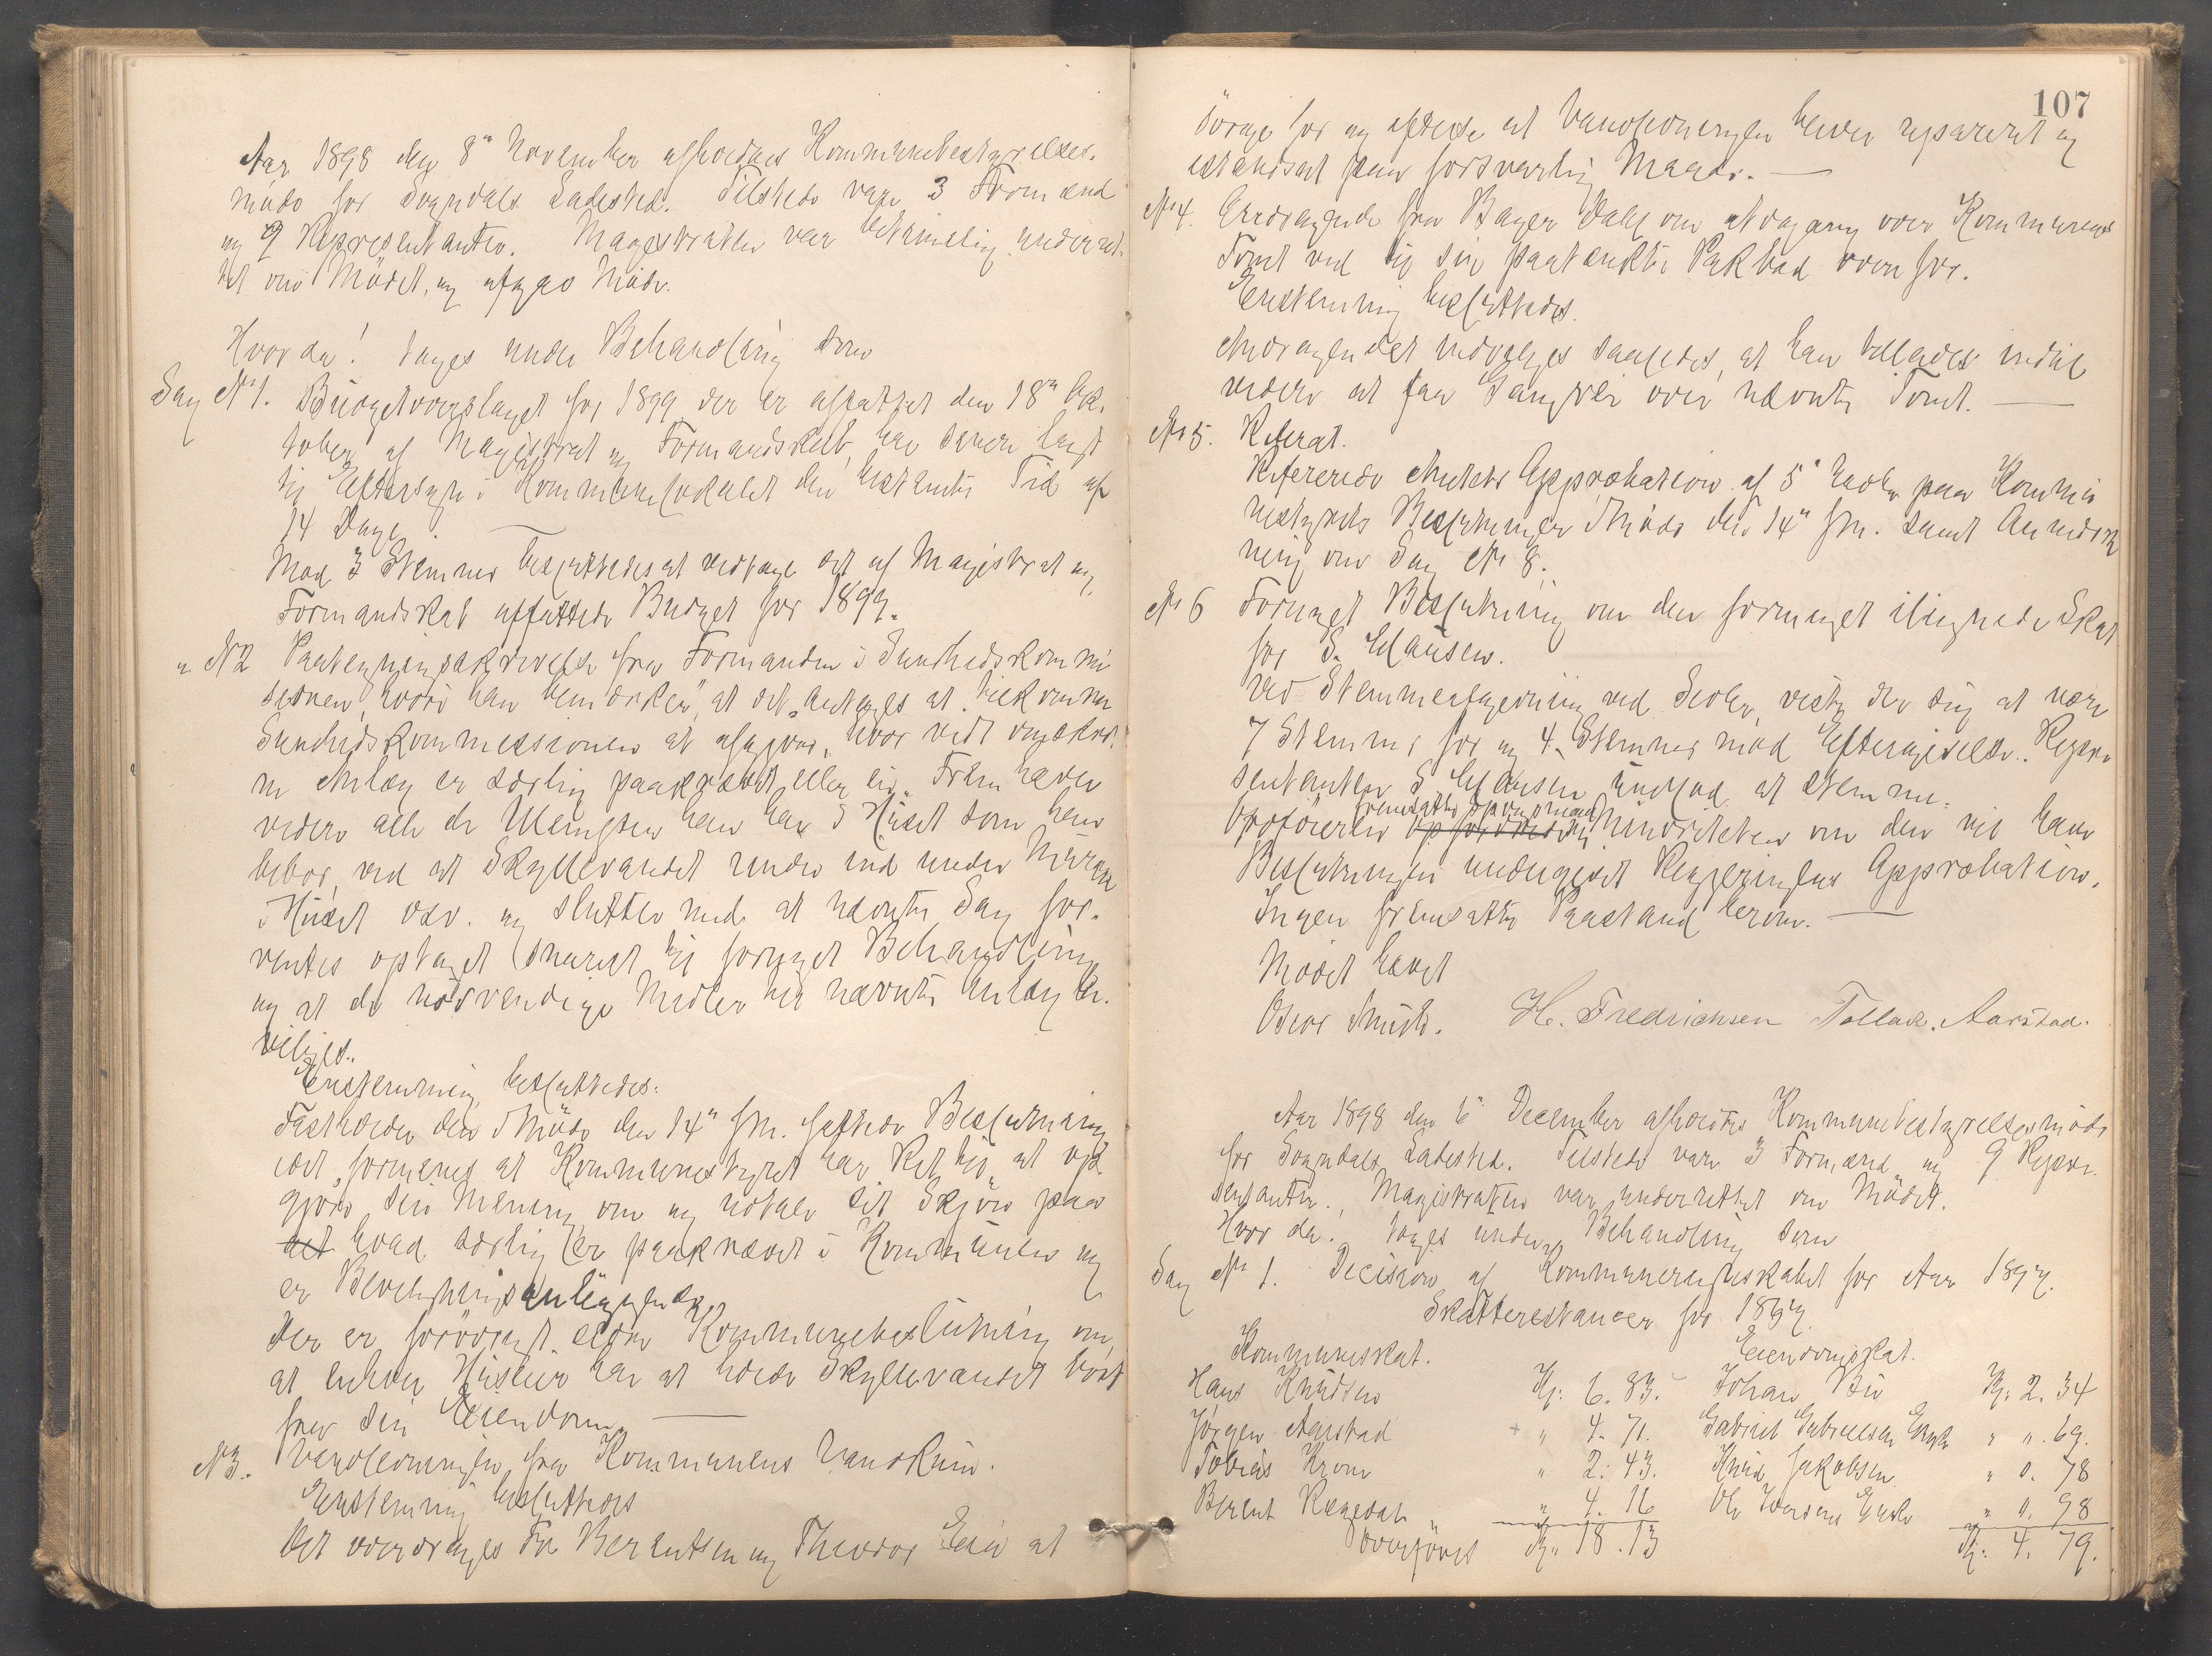 Aar 1898 den 8" November afholdtes Kommunebestyrelses-
möde for Sogndals Ladested. Tilstede var 3 Formænd
og 9 Repræsentanter. Magistraten var betimelig underret-
tet om Mödet, og afgav Möde.
Hvor da! toges under Behandling som
Sag No 1. Budgetvorslaget for 1899 der er affattet den 18de Ok-
tober af Magistrat og Formandskab, har senere lagt
til Eftersyn i Kommunelokalet den bestemte Tid af
14 Dage.
Mod 3 Stemmer besluttedes at vedtage det af Magistrat og
Formandskab affattede Budget for 1899.
" No 2 Paategningsskrivelse fra Formanden i Sundhedskommi
sionen, hvori han bemærker, at det "antages at tilkomme
Sundhedskommissionen at afgjøre, hvor vidt omskrev-
ne Anlæg er særlig paakrævet eller ei". Fremhæver
videre alle de Ulemper han har i Huset som han
bebor, ved at Skyllevandet render ind under Muren
i Huset osv. og slutter med at nævnte Sag for-
ventes optaget snarest til fornyet Behandling
og at de nödvendige Midler til nævnte Anlæg be-
vilges.
Enstemmig besluttedes:
Fastholder den i Möde den 14" f.M. fattede Beslutning
idet formenes at Kommunestyret har Ret til at op-
gjøre sin Mening om og udtale sit Skjøn paa
det hvad særlig er paakrævet i Kommunen og
er Bevilgningsanliggende.
Der er forövrigt ældre Kommunebeslutning om,
at enhver Huseier har at holde Skyllevandet bort
fra sin Eiendom.
No 3. Vandledningen fra Kommunens Vandkum.
Enstemmig besluttedes
Det overdrages Fr. Berentsen og Theodor Eeie at
107
sörge for og aftale at Vandledningen bliver repareret og
istandsat paa forsvarlig Maade.
No 4. Andragende fra Bager Dahl om Adgang over Kommunens
Tomt ved til sin paatænkte Pakbod ovenfor.
Enstemmig besluttedes.
Andragendet indvilges saaledes, at han tillades indtil
videre at faa Gangvei over nævnte Tomt.
No 5. Referat.
Refereredes Amtets Approbation af 5" Novbr paa Kommu
nestyrets Beslutninger i Möde den 14" f.M. samt Anmærk
ning om Sag No 8.
No 6 Fornyet Beslutning om den formeget ilignede Skat
for S. Clausen.
Ved Stemmeafgivning ved Sedler, viste der sig at være
7 Stemmer for og 4 Stemmer mod Eftergivelse. Repræ
sentanten S. Clausen undlod at stemme.
fremsatte Spørgsmaal
Ordføreren opfordrede til Minoriteten om den vil have
Beslutningen undergivet Regjeringens Approbation.
Ingen fremsatte Paastand herom.
Mödet hævet
Oscar Smith. H. Fredrichsen Tollak. Aarstad.
Aar 1898 den 6" December afholdtes Kommunebestyrelsesmöde
for Sogndals Ladested. Tilstede var 3 Formænd og 9 Repræ-
sentanter. Magistraten var underrettet om Mödet.
Hvor da. toges under Behandling som
Sag No 1. Decision af Kommuneregnskabet for Aar 1897.
Skatterestancer for 1897.
Kommuneskat. Eiendomsskat.
Hans Knudsen Kr: 6. 83. Johan Bu Kr: 2. 34
Jørgen Aarstad + " 4. 71. Gabriel Gabrielsen " ". 69.
Tobias Krone " 2. 43. Knud Jakobsen " 0. 78
Berent Rægedal " 4. 16 Ole Iversen " 0. 98
Overföres Kr. 18. 13 Kr: 4. 79.